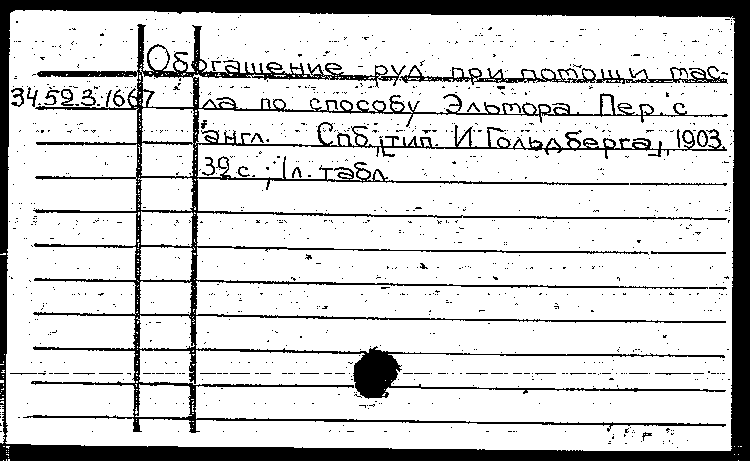 Обогащение руд при помощи мас-
34.52.3.1667 ла по способу Эльмора. Пер. с
англ. Спб., [тип. И. Гольдберга], 1903.
39 с.; 1 л. табл.